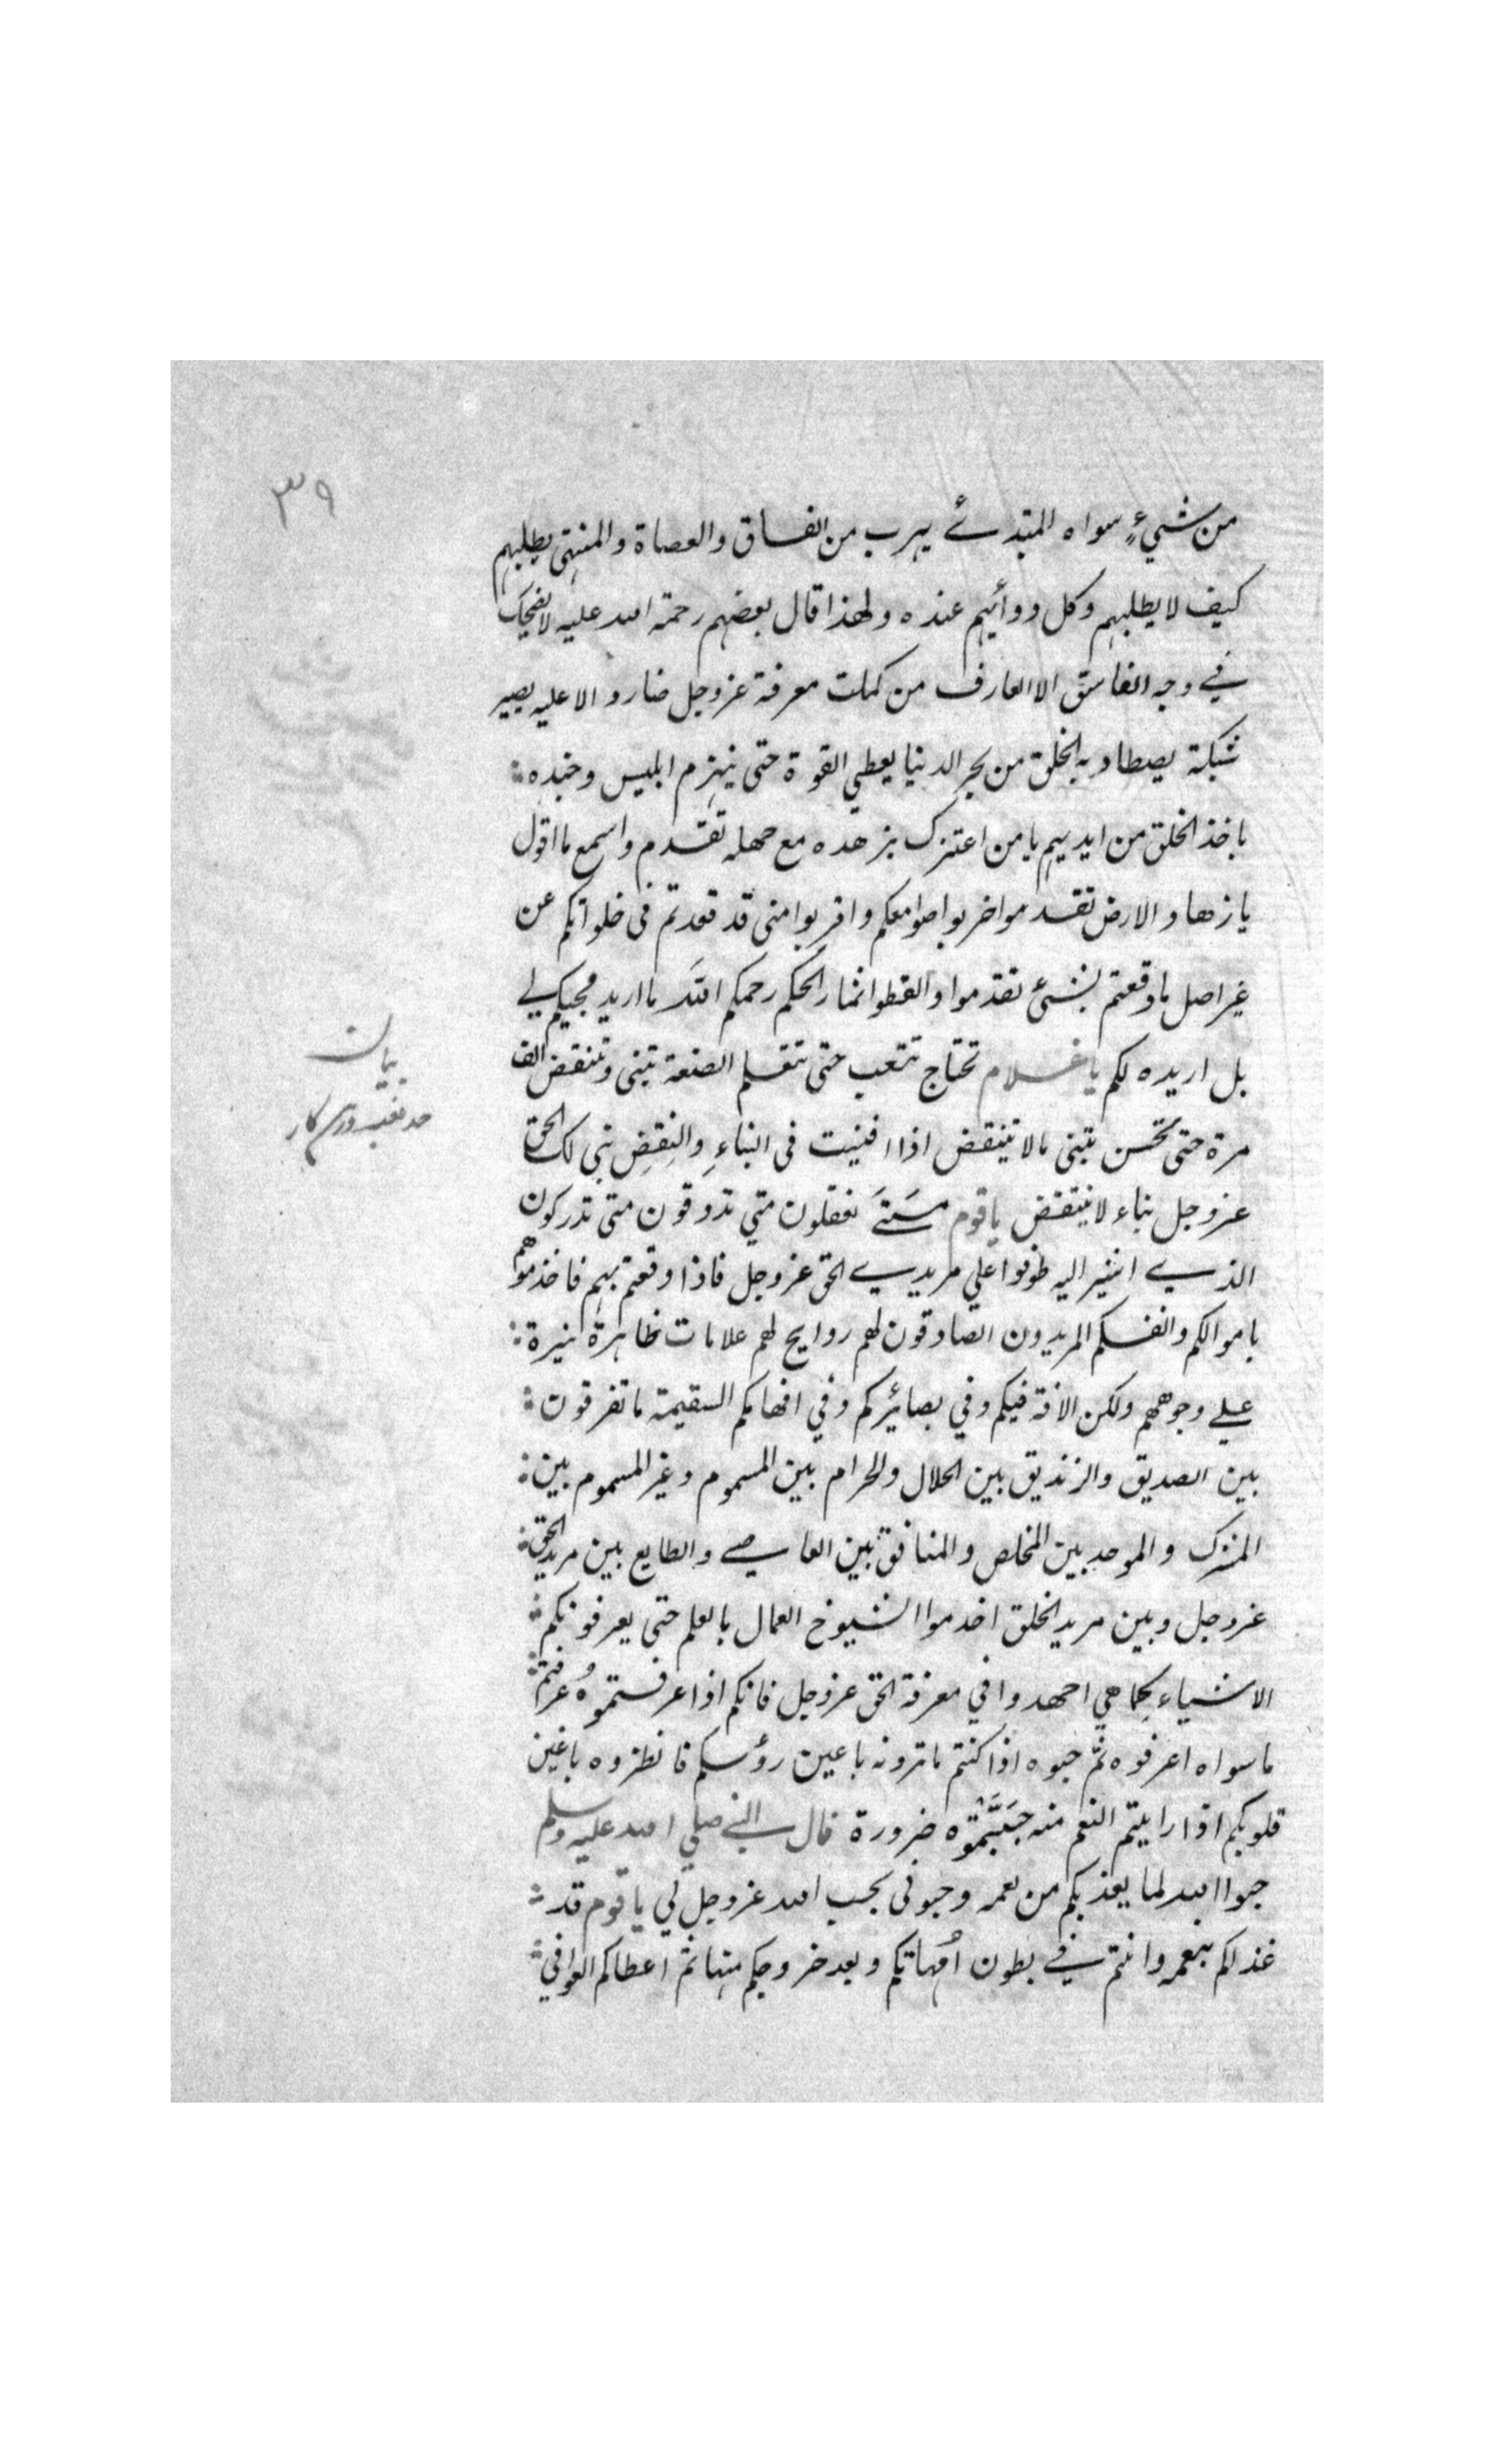 ٣٩
من شيءٍ سواه المبتدئ يهرب من الفساق والعصاة والمنتهى يطلبهم
كيف لا يطلبهم وكل دوائهم عنده ولهذا قال بعضهم رحمة الله عليه لا يضحك
في وجه الفاسق الا العارف من كملت معرفة عز وجل صار دالا عليه يصير
شبكة يصطاد به الخلق من بحر الدنيا يعطي القوة حتى ينهزم ابليس وجنده
ياخذ الخلق من ايديهم يا من اعتزل بزهده مع جهله تقدم واسمع ما اقول
يا زهاد الارض تقدموا خربوا صوامعكم واقربوا منى قد قعدتم فى خلواتكم عن
غير اصل ما وقعتم بشئ تقدموا والقطوا ثمار الحكم رحمكم الله ما اريد مجيئكم لي
بل اريده لكم يا غلام تحتاج تتعب حتى تتعلم الصنعة تبنى وتنقض الف
مرة حتى تحسن تبنى ما لا ينتقض اذا افنيت فى البناءِ والنقضِ بنى لك الحق
عز وجل بناء لا ينتقض يا قوم متى تعقلون متي تدوقون متى تدركون
الذي اشير اليه طوفوا علي مريدي الحق عز وجل فاذا وقعتم بهم فاخدموهم
باموالكم وانفسكم المريدون الصادقون لهم روايح لهم علامات ظاهرة نيرة
علي وجوههم ولكن الافة فيكم وفي بصائركم وفي افهامكم السقيمة ما تفرقون
بين الصديق والزنديق بين الحلال والحرام بين المسموم وغير المسموم بين
المشرك والموحد بين المخلص والمنافق بين العاصي والطايع بين مريد الحق
عز وجل وبين مريد الخلق اخدموا الشيوخ العمال بالعلم حتى يعرفونكم
الاشياء كما هي اجهدوا في معرفة الحق عز وجل فانكم اذا عرفتموهُ عرفتم
ما سواه اعرفوه ثم حبوه اذا كنتم ما ترونه باعين رؤسكم فانظروه باعين
قلوبكم اذا رايتم النعم منه حبَبتموه ضرورة قال النبي صلي الله عليه وسلم
حبوا الله لما يغذيكم من نعمه وحبونى بحب الله عز وجل لي يا قوم قد
غذاكم بنعمه وانتم في بطون امُهاتكم وبعد خروجكم منها ثم اعطاكم العوافي
بيان